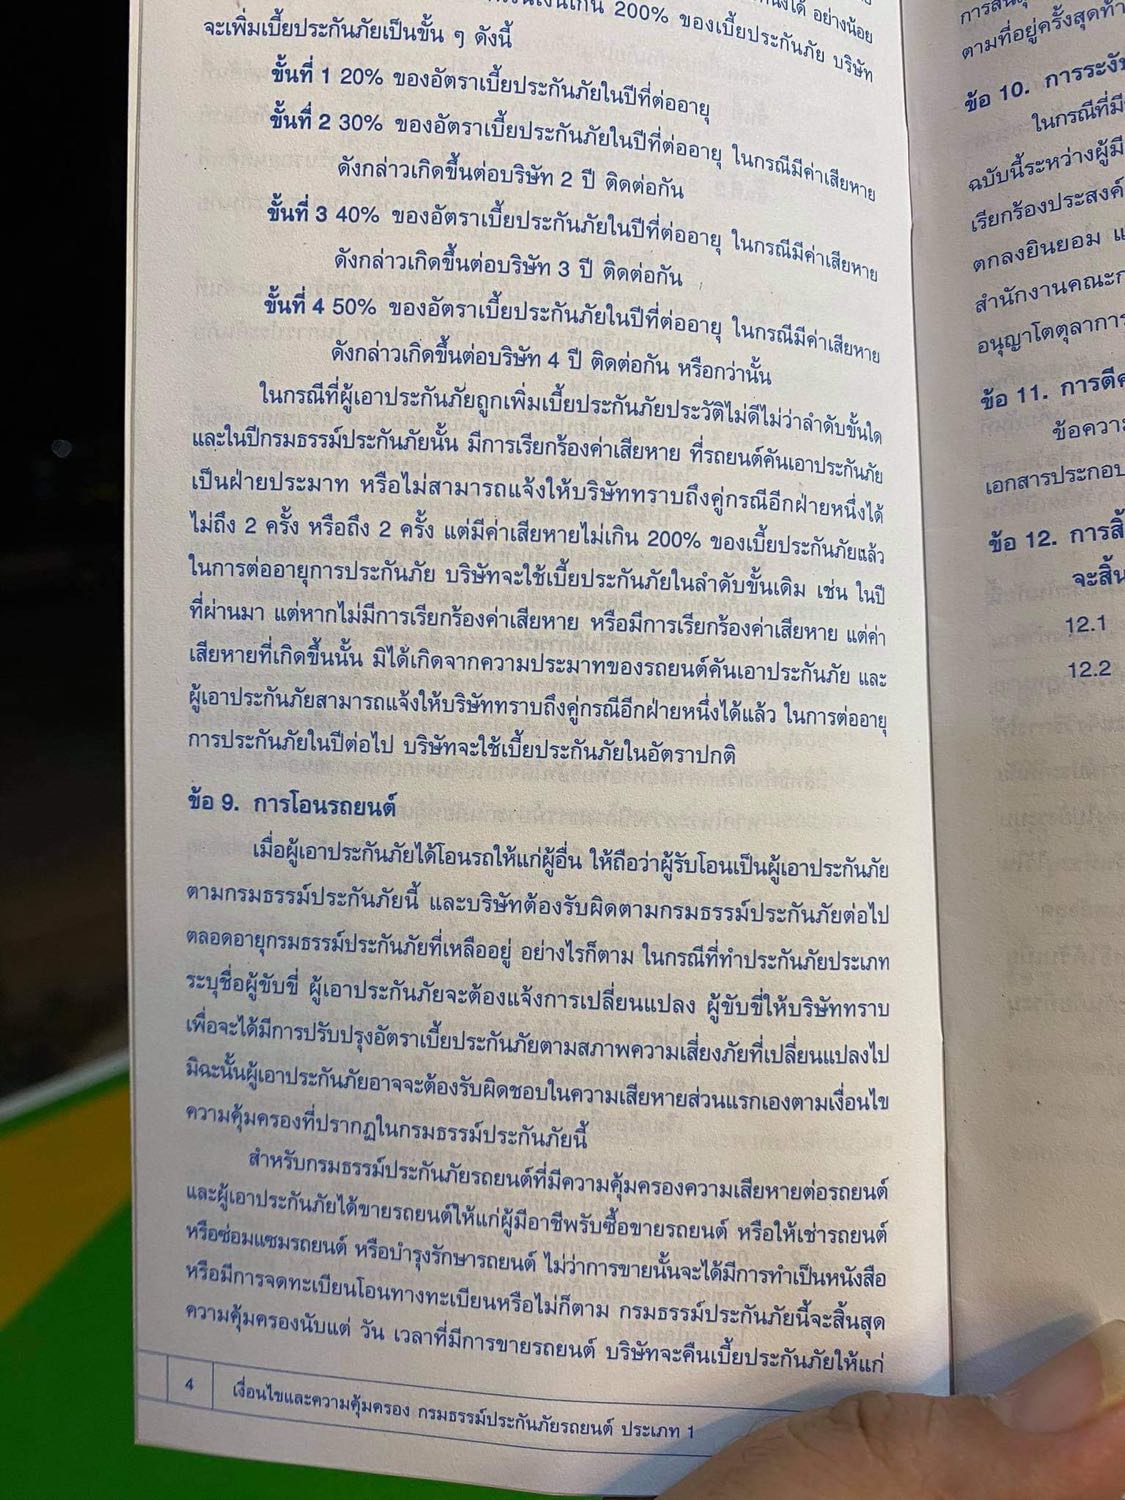 200% ของเบี้ยประกันภัย บริษัท
จะเพิ่มเบี้ยประกันภัยเป็นขั้น ๆ ดังนี้
ขั้นที่ 1 20% ของอัตราเบี้ยประกันภัยในปีที่ต่ออายุ
ขั้นที่ 2 30% ของอัตราเบี้ยประกันภัยในปีที่ต่ออายุ ในกรณีมีค่าเสียหาย
ดังกล่าวเกิดขึ้นต่อบริษัท 2 ปี ติดต่อกัน
ขั้นที่ 3 40% ของอัตราเบี้ยประกันภัยในปีที่ต่ออายุ ในกรณีมีค่าเสียหาย
ดังกล่าวเกิดขึ้นต่อบริษัท 3 ปี ติดต่อกัน
ขั้นที่ 4 50% ของอัตราเบี้ยประกันภัยในปีที่ต่ออายุ ในกรณีมีค่าเสียหาย
ดังกล่าวเกิดขึ้นต่อบริษัท 4 ปี ติดต่อกัน หรือกว่านั้น
ในกรณีที่ผู้เอาประกันภัยถูกเพิ่มเบี้ยประกันภัยประวัติไม่ดีไม่ว่าลำดับขั้นใด
และในปีกรมธรรม์ประกันภัยนั้น มีการเรียกร้องค่าเสียหาย ที่รถยนต์คันเอาประกันภัย
เป็นฝ่ายประมาท หรือไม่สามารถแจ้งให้บริษัททราบถึงคู่กรณีอีกฝ่ายหนึ่งได้
ไม่ถึง 2 ครั้ง หรือถึง 2 ครั้ง แต่มีค่าเสียหายไม่เกิน 200% ของเบี้ยประกันภัยแล้ว
ในการต่ออายุการประกันภัย บริษัทจะใช้เบี้ยประกันภัยในลำดับขั้นเดิม เช่น ในปี
ที่ผ่านมา แต่หากไม่มีการเรียกร้องค่าเสียหาย หรือมีการเรียกร้องค่าเสียหาย แต่ค่า
เสียหายที่เกิดขึ้นนั้น มิได้เกิดจากความประมาทของรถยนต์คันเอาประกันภัย และ
ผู้เอาประกันภัยสามารถแจ้งให้บริษัททราบถึงคู่กรณีอีกฝ่ายหนึ่งได้แล้ว ในการต่ออายุ
การประกันภัยในปีต่อไป บริษัทจะใช้เบี้ยประกันภัยในอัตราปกติ
ข้อ 9. การโอนรถยนต์
เมื่อผู้เอาประกันภัยได้โอนรถให้แก่ผู้อื่น ให้ถือว่าผู้รับโอนเป็นผู้เอาประกันภัย
ตามกรมธรรม์ประกันภัยนี้ และบริษัทต้องรับผิดตามกรมธรรม์ประกันภัยต่อไป
ตลอดอายุกรมธรรม์ประกันภัยที่เหลืออยู่ อย่างไรก็ตาม ในกรณีที่ทำประกันภัยประเภท
ระบุชื่อผู้ขับขี่ ผู้เอาประกันภัยจะต้องแจ้งการเปลี่ยนแปลง ผู้ขับขี่ให้บริษัททราบ
เพื่อจะได้มีการปรับปรุงอัตราเบี้ยประกันภัยตามสภาพความเสี่ยงภัยที่เปลี่ยนแปลงไป
มิฉะนั้นผู้เอาประกันภัยอาจจะต้องรับผิดชอบในความเสียหายส่วนแรกเองตามเงื่อนไข
ความคุ้มครองที่ปรากฏในกรมธรรม์ประกันภัยนี้
สำหรับกรมธรรม์ประกันภัยรถยนต์ที่มีความคุ้มครองความเสียหายต่อรถยนต์
และผู้เอาประกันภัยได้ขายรถยนต์ให้แก่ผู้มีอาชีพรับซื้อขายรถยนต์ หรือให้เช่ารถยนต์
หรือซ่อมแซมรถยนต์ หรือบำรุงรักษารถยนต์ ไม่ว่าการขายนั้นจะได้มีการทำเป็นหนังสือ
หรือมีการจดทะเบียนโอนทางทะเบียนหรือไม่ก็ตาม กรมธรรม์ประกันภัยนี้จะสิ้นสุด
ความคุ้มครองนับแต่ วัน เวลาที่มีการขายรถยนต์ บริษัทจะคืนเบี้ยประกันภัยให้แก่
4 เงื่อนไขและความคุ้มครอง กรมธรรม์ประกันภัยรถยนต์ ประเภท 1
ตามที่อยู่ครั้งสุดท้า
ข้อ 10. การระงับ
ในกรณีที่มี
ฉบับนี้ระหว่างผู้มี
เรียกร้องประสงค์
ตกลงยินยอม แ
สำนักงานคณะก
อนุญาโตตุลาการ
ข้อ 11. การตีค
ข้อความ
เอกสารประกอบ
ข้อ 12. การสิ้
จะสิ้น
12.1
12.2